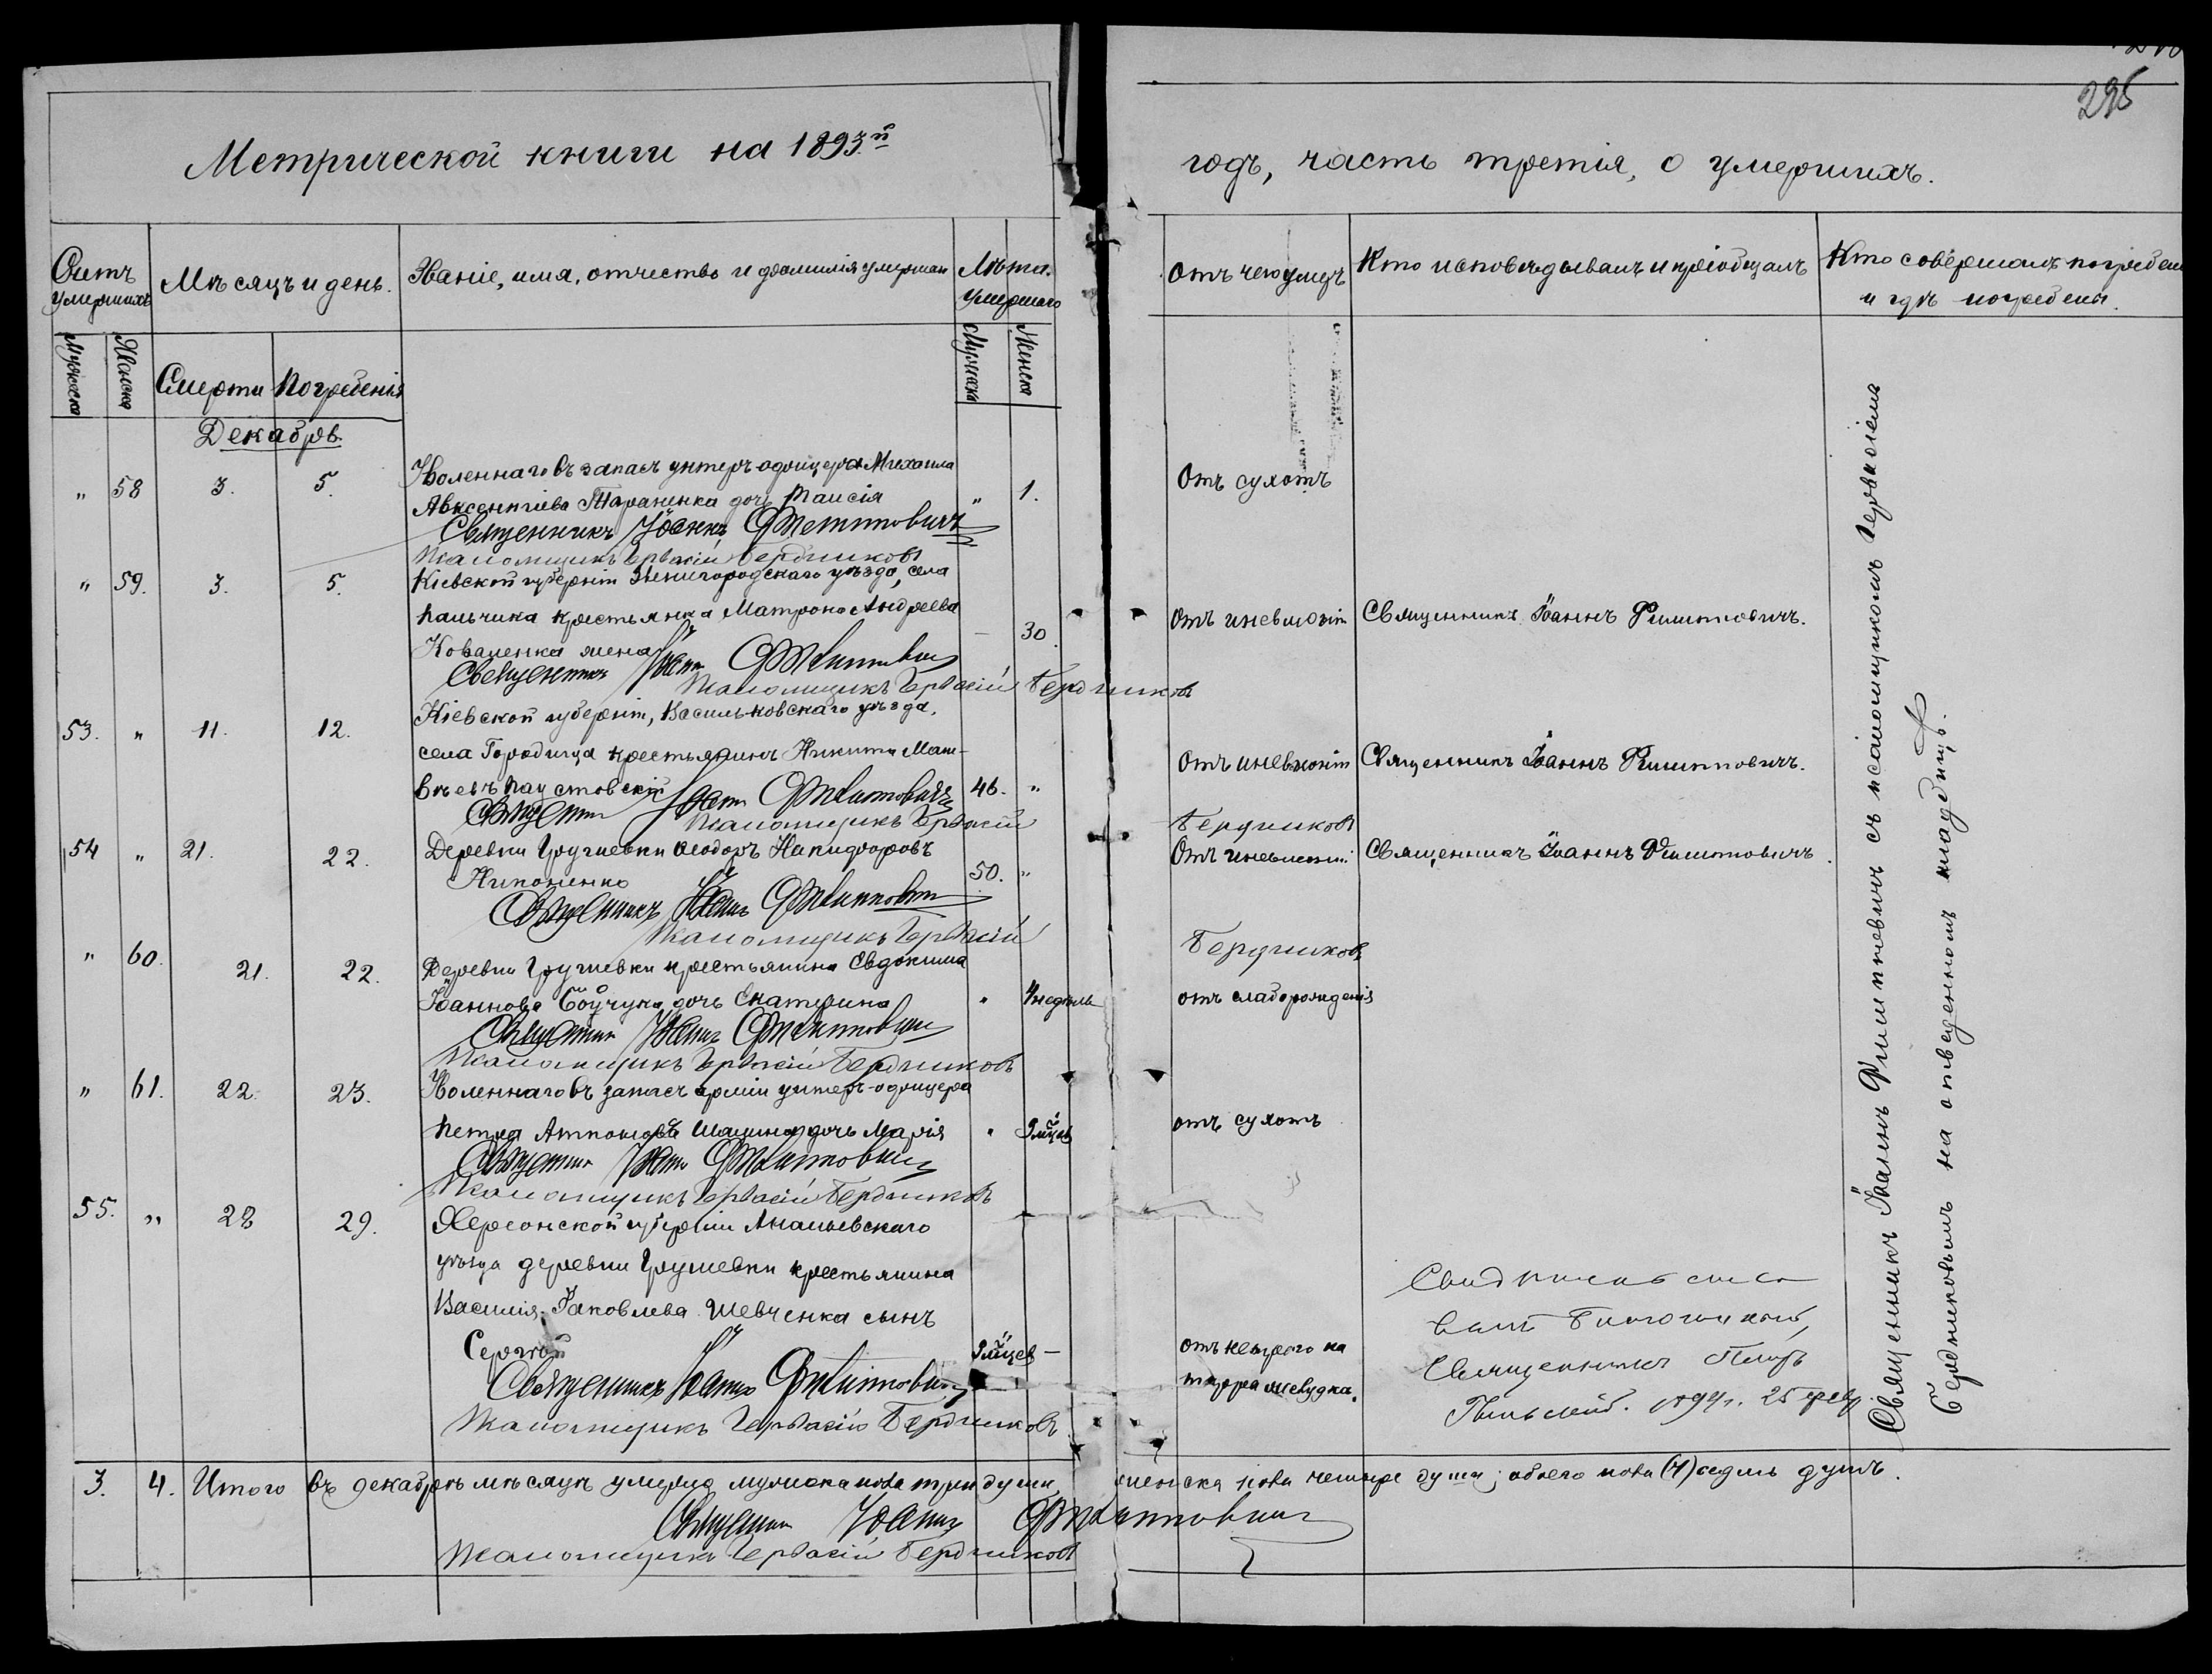 295
Метрической книги на 1893й
годъ, часть третія, о умершихъ.
Счетъ умершихъ
Мѣсяцъ и день.
Званіе, имя, отчество и фамилія умершаго
Лѣта умершаго
Отъ чего умеръ
Кто исповѣдывалъ и пріобщалъ
Кто совершалъ погребеніе
и гдѣ погребены.
Мужеска
Женска
Смерти
Погребенія
Мужеска
Женска
Декабрь
Уволеннаго въ запасъ унтеръ-офицера Михаила
" 58 3. 5. Авксентіева Тараненка дочь Таисія " 1. Отъ сухотъ
Священникъ Іоаннъ Филиповичъ
Псаломщикъ Гервасій Бердниковъ
" 59. 3. 5. Кіевской губерніи Звенигородскаго уѣзда, села
Пальчика крестьянка Матрона Андреева
Коваленка жена — 30 Отъ пневмоніи Священникъ Іоаннъ Филиповичъ.
Священникъ Іоаннъ Филиповичъ
Псаломщикъ Гервасій Бердниковъ
53. " 11. 12. Кіевской губерніи, Васильковскаго уѣзда,
села Городища крестьянинъ Никита Мат-
вѣевъ Паустовскій 46. " Отъ пневмоніи Священникъ Іоаннъ Филиповичъ.
Священникъ Іоаннъ Филиповичъ
Псаломщикъ Гервасій Бердниковъ
54 " 21. 22. Деревни Грушевки Ѳеодоръ Никифоровъ
Никоненко 50. " Отъ пневмоніи Священникъ Іоаннъ Филиповичъ.
Священникъ Іоаннъ Филиповичъ
Псаломщикъ Гервасій Бердниковъ
" 60. 21. 22. Деревни Грушевки крестьянина Евдокима
Іоаннова дочь Екатерина " недѣли отъ слаборожденія
Священникъ Іоаннъ Филиповичъ
Псаломщикъ Гервасій Бердниковъ
" 61. 22. 23. Уволеннаго въ запасъ арміи унтеръ-офицера
Петра дочь Марія " 9 мѣсцев отъ сухотъ
Священникъ Іоаннъ Филиповичъ
Псаломщикъ Гервасій Бердниковъ
55. " 28 29. Херсонской губерніи Ананьевскаго
уѣзда деревни Грушевки крестьянина
Василія Іаковлева Шевченка сынъ
Сергій 9 мѣсцев — отъ катарра желудка.
Священникъ Іоаннъ Филиповичъ
Псаломщикъ Гервасій Бердниковъ
Священникъ
1894 г. 25 февр.
Священникъ Іоаннъ Филиповичъ съ псаломщикомъ Гервасіемъ
Бердниковымъ на отведенномъ кладбищѣ.
3. 4. Итого въ декабрѣ мѣсяцѣ умерло мужеска пола три души, женска пола четыре души; обоего пола (7) седмь душъ.
Священникъ Іоаннъ Филиповичъ
Псаломщикъ Гервасій Бердниковъ